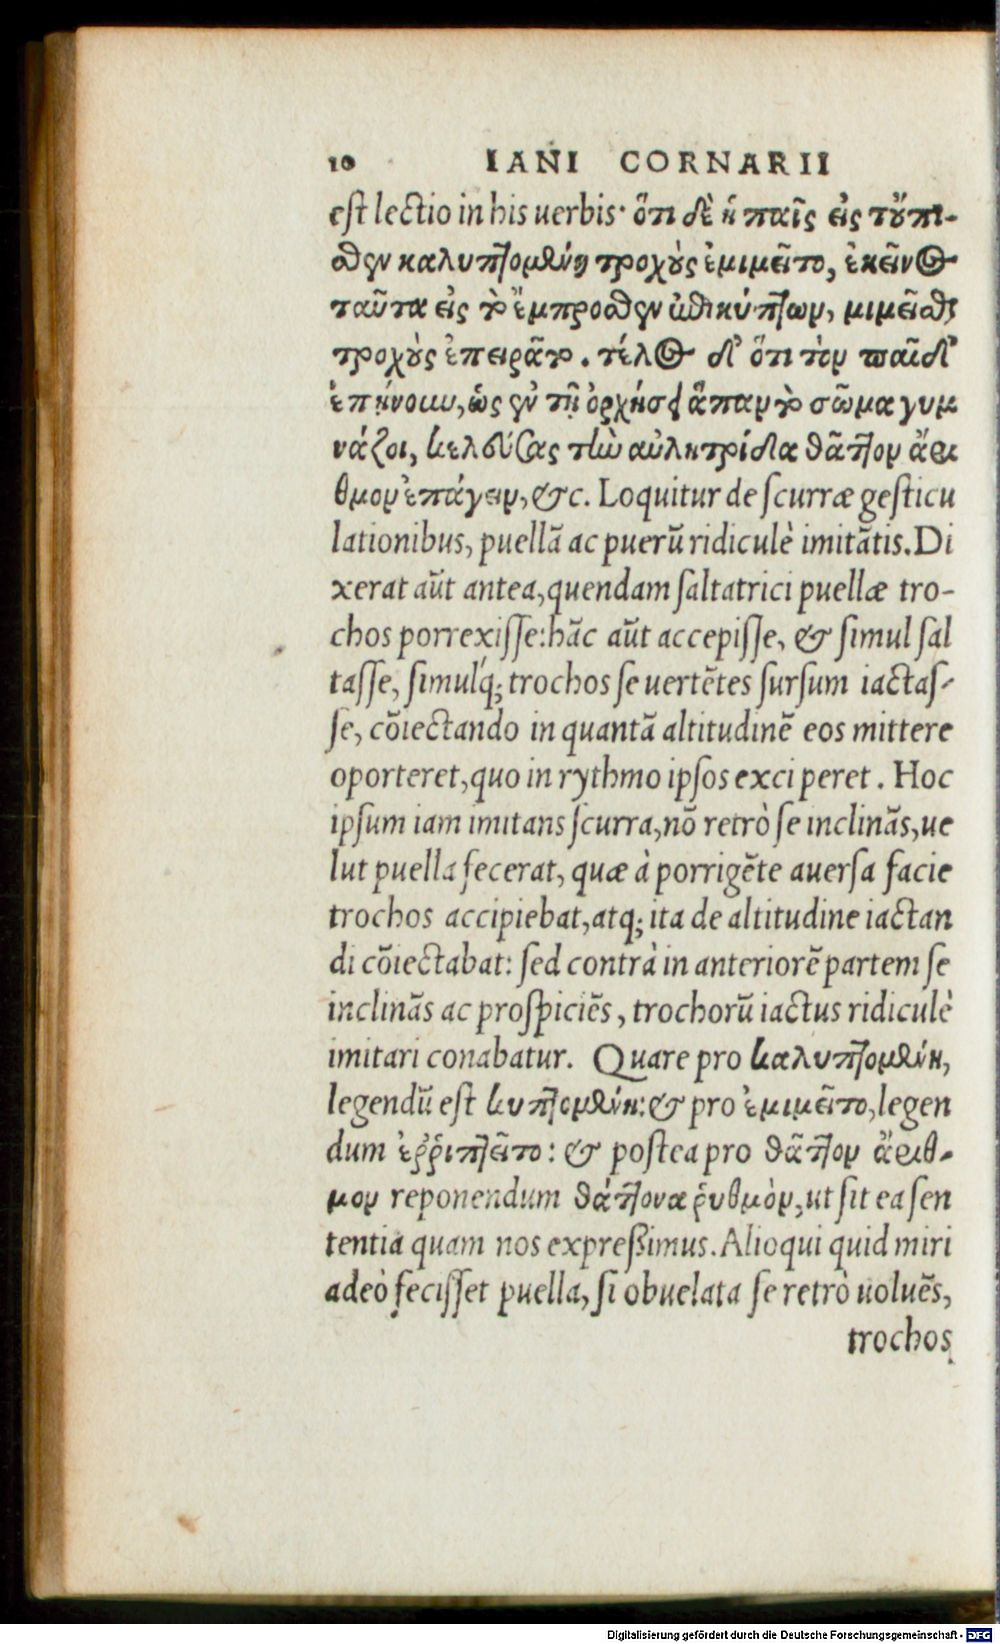 10 IANI CORNARII
est lectio in his uerbis· ὅτι δὲ ἡ παῖς εἰς τὄπι-
σθεν καλυπτομένη τροχοὺς ἐμιμεῖτο, ἐκεῖνος
ταῦτα εἰς τὸ ἔμπροσθεν ἐπικύπτων, μιμεῖσθαι
τροχοὺς ἐπειρᾶτο. τέλος δ' ὅτι τὸν παῖδ'
ἐπῄνουν, ὡς ἐν τῇ ὀρχήσει ἅπαν τὸ σῶμα γυμ
νάζοι, κελεύσας τὴν αὐλητρίδα θᾶττον ἄρι
θμον ἐπάγειν, &c. Loquitur de scurræ gesticu
lationibus, puellã ac puerũ ridiculè imitãtis. Di
xerat aũt antea, quendam saltatrici puellæ tro-
chos porrexisse: hãc aũt accepisse, & simul sal
tasse, simulq́; trochos se uertẽtes sursum iactas-
se, cõiectando in quantã altitudinẽ eos mittere
oporteret, quo in rythmo ipsos exciperet. Hoc
ipsum iam imitans scurra, nõ retrò se inclinãs, ue
lut puella fecerat, quæ à porrigẽte auersa facie
trochos accipiebat, atq; ita de altitudine iactan
di cõiectabat: sed contrà in anteriorẽ partem se
inclinãs ac prospiciẽs, trochorũ iactus ridiculè
imitari conabatur. Quare pro καλυπτομένη,
legendũ est κυπτομένη: & pro ἐμιμεῖτο, legen
dum ἐῤῥιπτεῖτο: & postea pro θᾶττον ἄριθ-
μον reponendum θάττονα ῥυθμὸν, ut sit ea sen
tentia quam nos expreßimus. Alioqui quid miri
adeò fecisset puella, si obuelata se retrò uoluẽs,
trochos
Digitalisierung gefördert durch die Deutsche Forschungsgemeinschaft - DFG